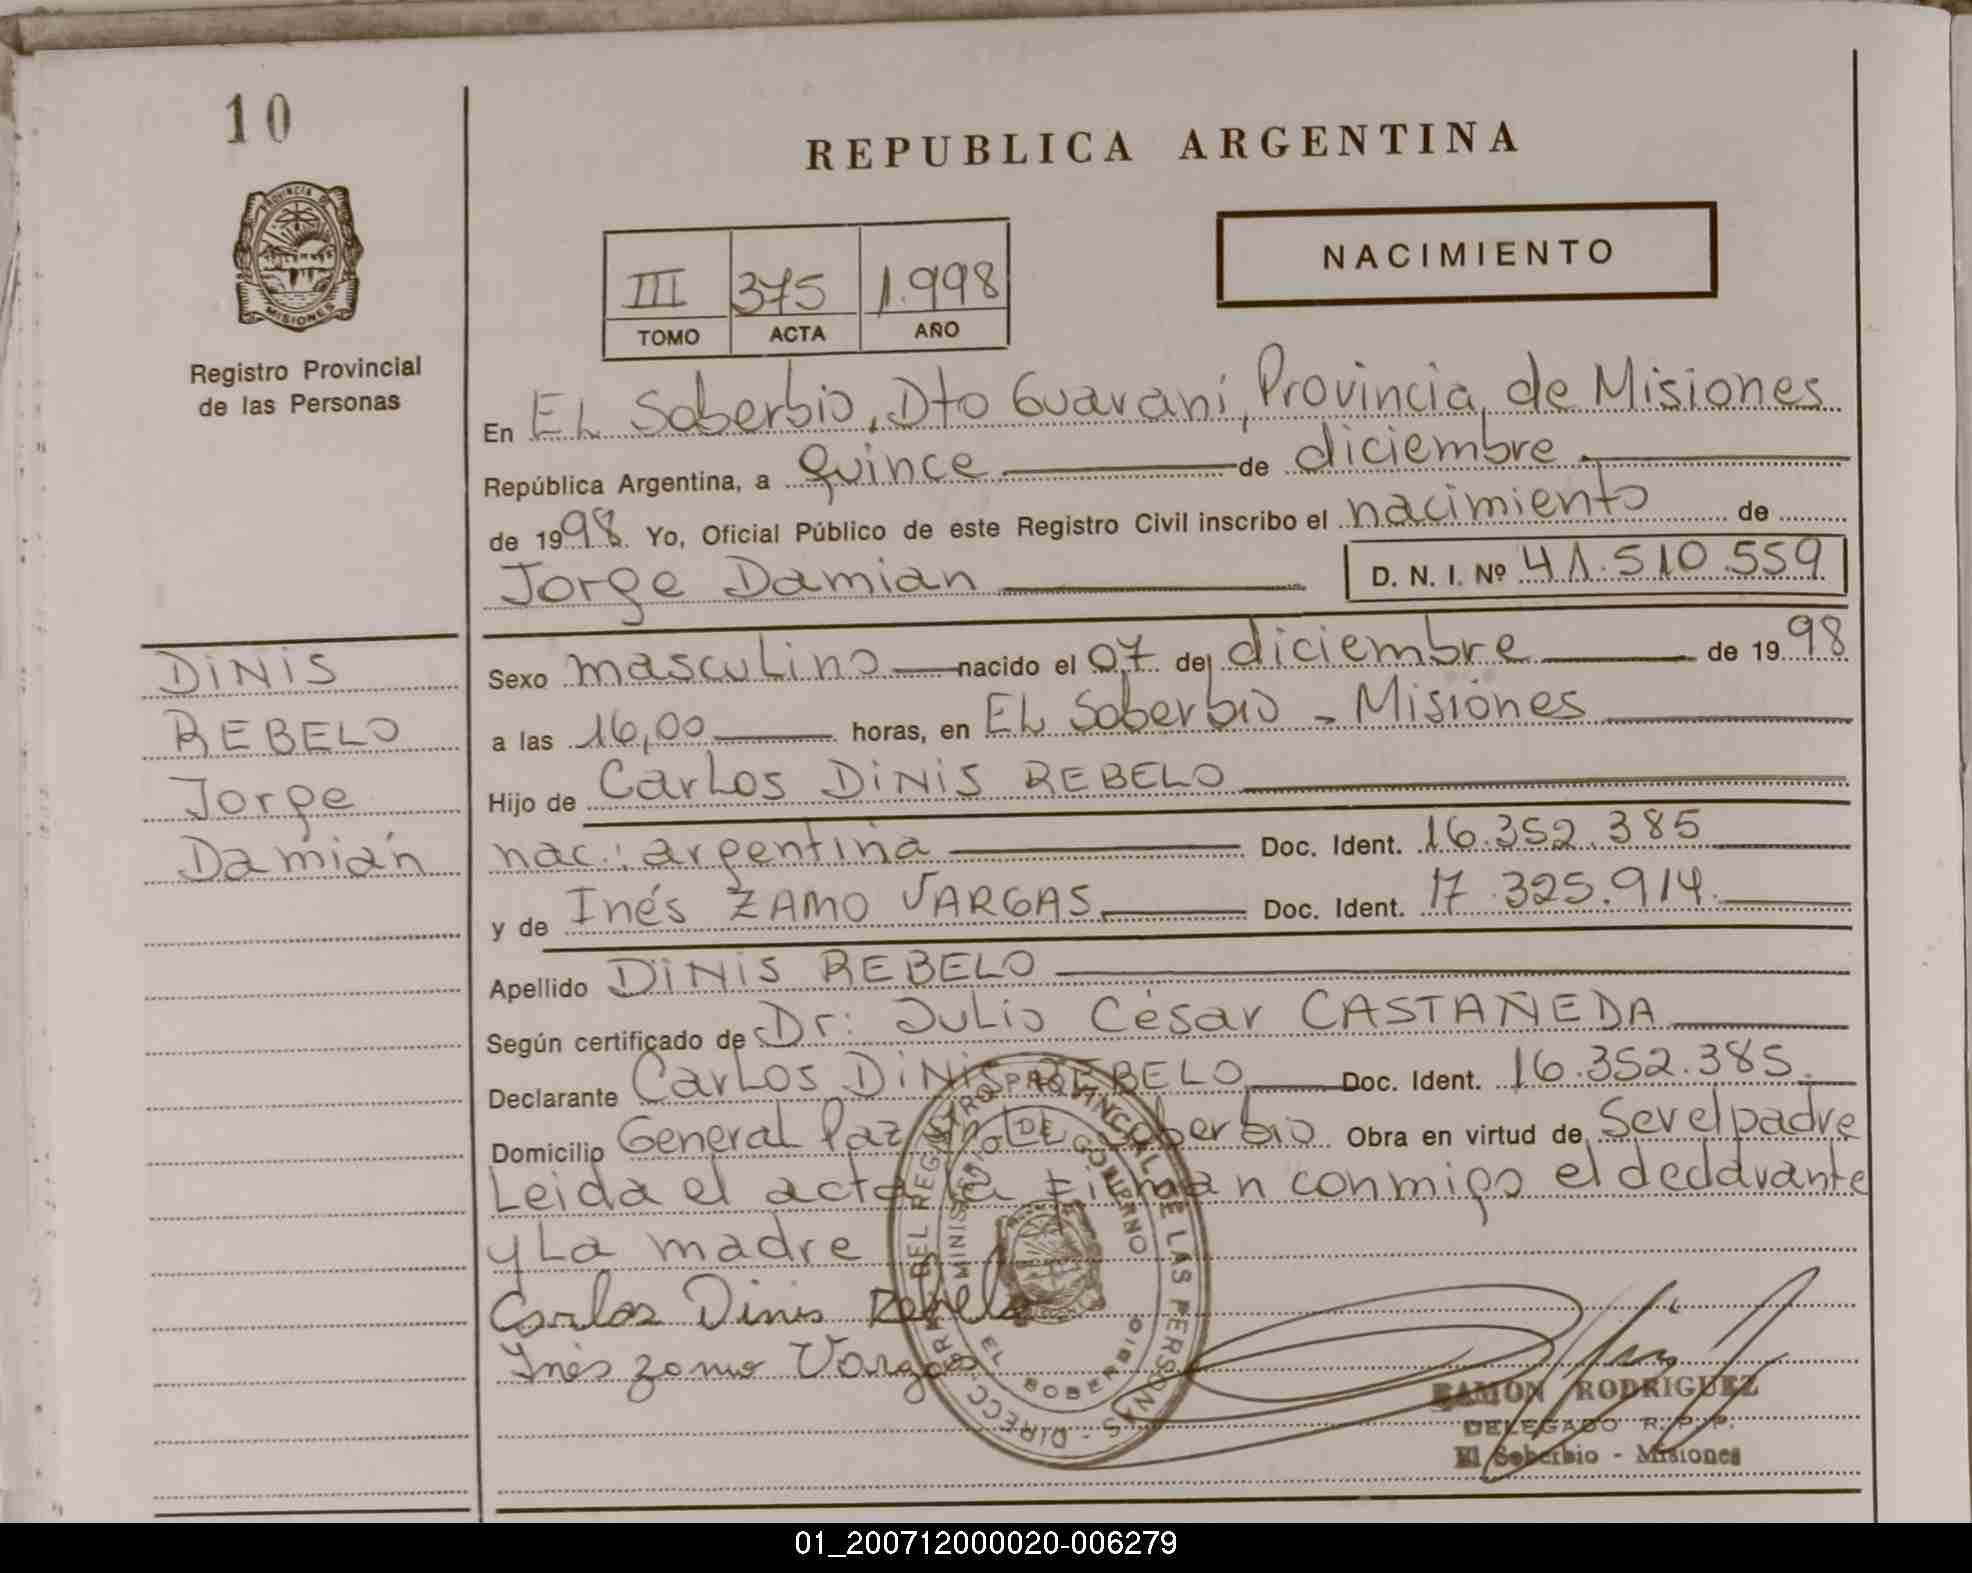 10
PROVINCIA DE
MISIONES
Registro Provincial
de las Personas
REPUBLICA ARGENTINA
NACIMIENTO
III 375 1.998
TOMO ACTA AÑO
En EL Soberbio, Dto Guaraní, Provincia de Misiones
República Argentina, a quince de diciembre
de 1998. Yo, Oficial Público de este Registro Civil inscribo el nacimiento de
Jorge Damian D. N. I. Nº 41.510.559
DINIS
REBELO
Jorge
Damián
Sexo masculino nacido el 07 de diciembre de 1998
a las 16,00 horas, en EL Soberbio - Misiones
Hijo de Carlos DINIS REBELO
nac.: argentina Doc. Ident. 16.352.385
y de Inés ZAMO VARGAS Doc. Ident. 17.325.914.
Apellido DINIS REBELO
Según certificado de Dr: Julio César CASTAÑEDA
Declarante Carlos DINIS REBELO Doc. Ident. 16.352.385.
Domicilio General Paz EL Soberbio Obra en virtud de Ser el padre
Leida el acta la firman conmigo el declarante
y La madre
Carlos Dinis Rebelo
Inés zamo Vargas
DIRECC. GRAL. DEL REGISTRO PROVINCIAL DE LAS PERSONAS -
MINISTERIO DE GOBIERNO
EL SOBERBIO
RAMON RODRIGUEZ
DELEGADO R. P. P.
El Soberbio - Misiones
01_200712000020-006279